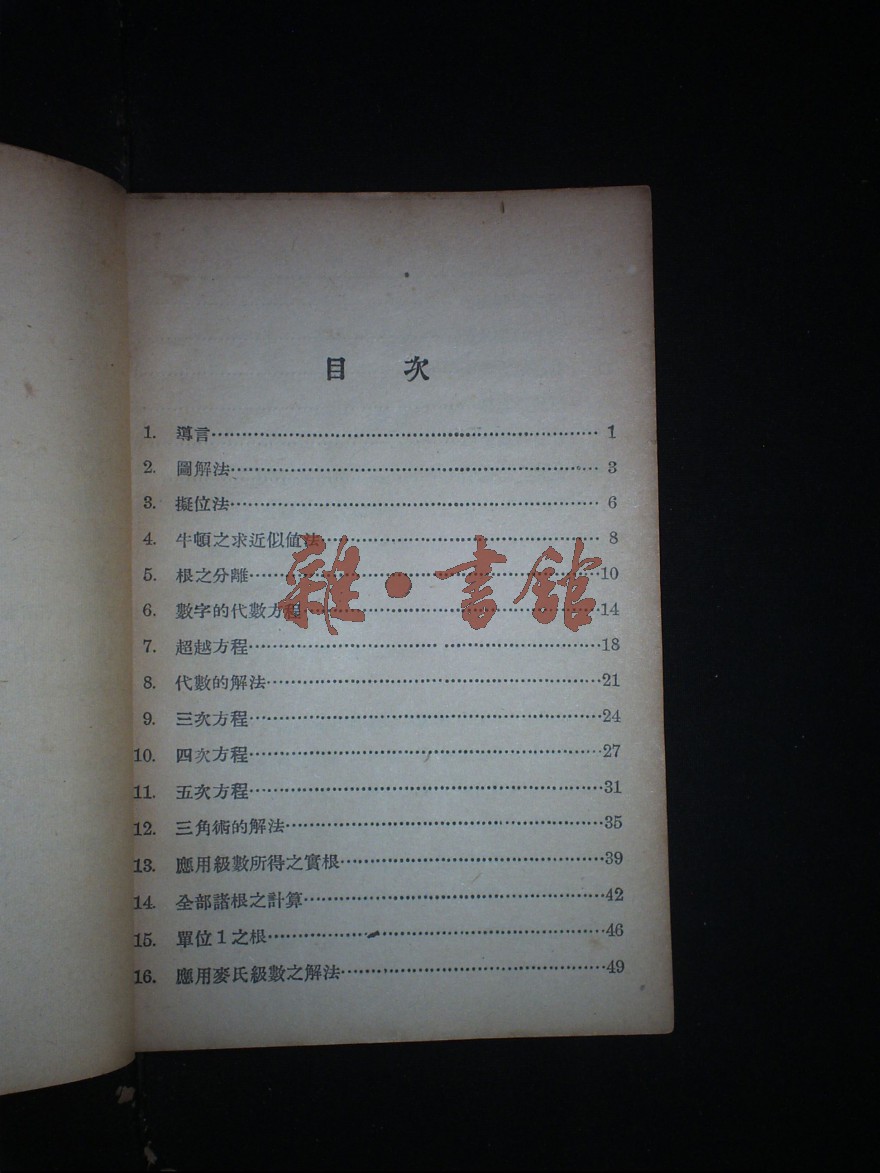 目 次
1. 導言 1
2. 圖解法 3
3. 擬位法 6
4. 牛頓之求近似值法 8
5. 根之分離 10
6. 數字的代數方程 14
7. 超越方程 18
8. 代數的解法 21
9. 三次方程 24
10. 四次方程 27
11. 五次方程 31
12. 三角術的解法 35
13. 應用級數所得之實根 39
14. 全部諸根之計算 42
15. 單位1之根 46
16. 應用麥氏級數之解法 49
雜·書館